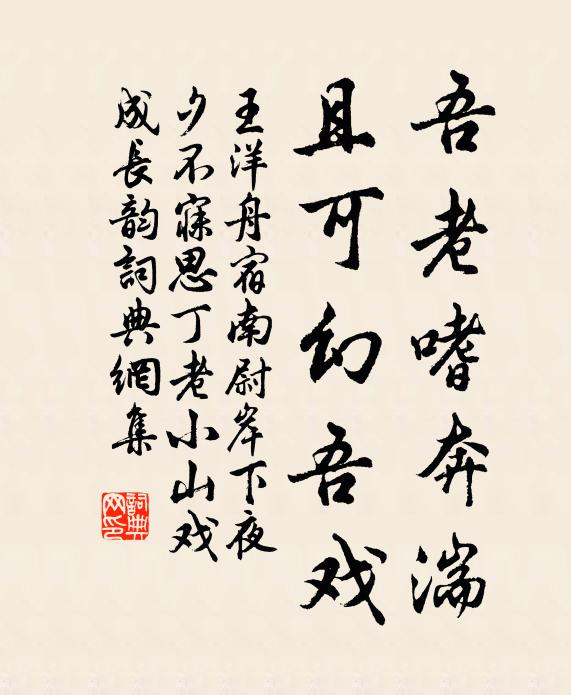 吾老嗜奔湍
且可幻吾戏
王洋舟宿南尉岸下夜
夕不寐思丁老小山戏
成長韵詞典網集
詞典网印